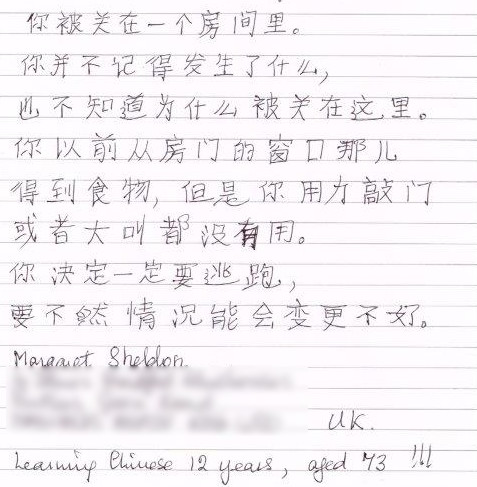 你被关在一个房间里。
你并不记得发生了什么,
也不知道为什么被关在这里。
你以前从房门的窗口那儿
得到食物, 但是你用力敲门
或者大叫都没有用。
你决定一定要逃跑,
要不然情况能会变更不好。
Margaret Sheldon
UK.
Learning Chinese 12 years, aged 73 !!!